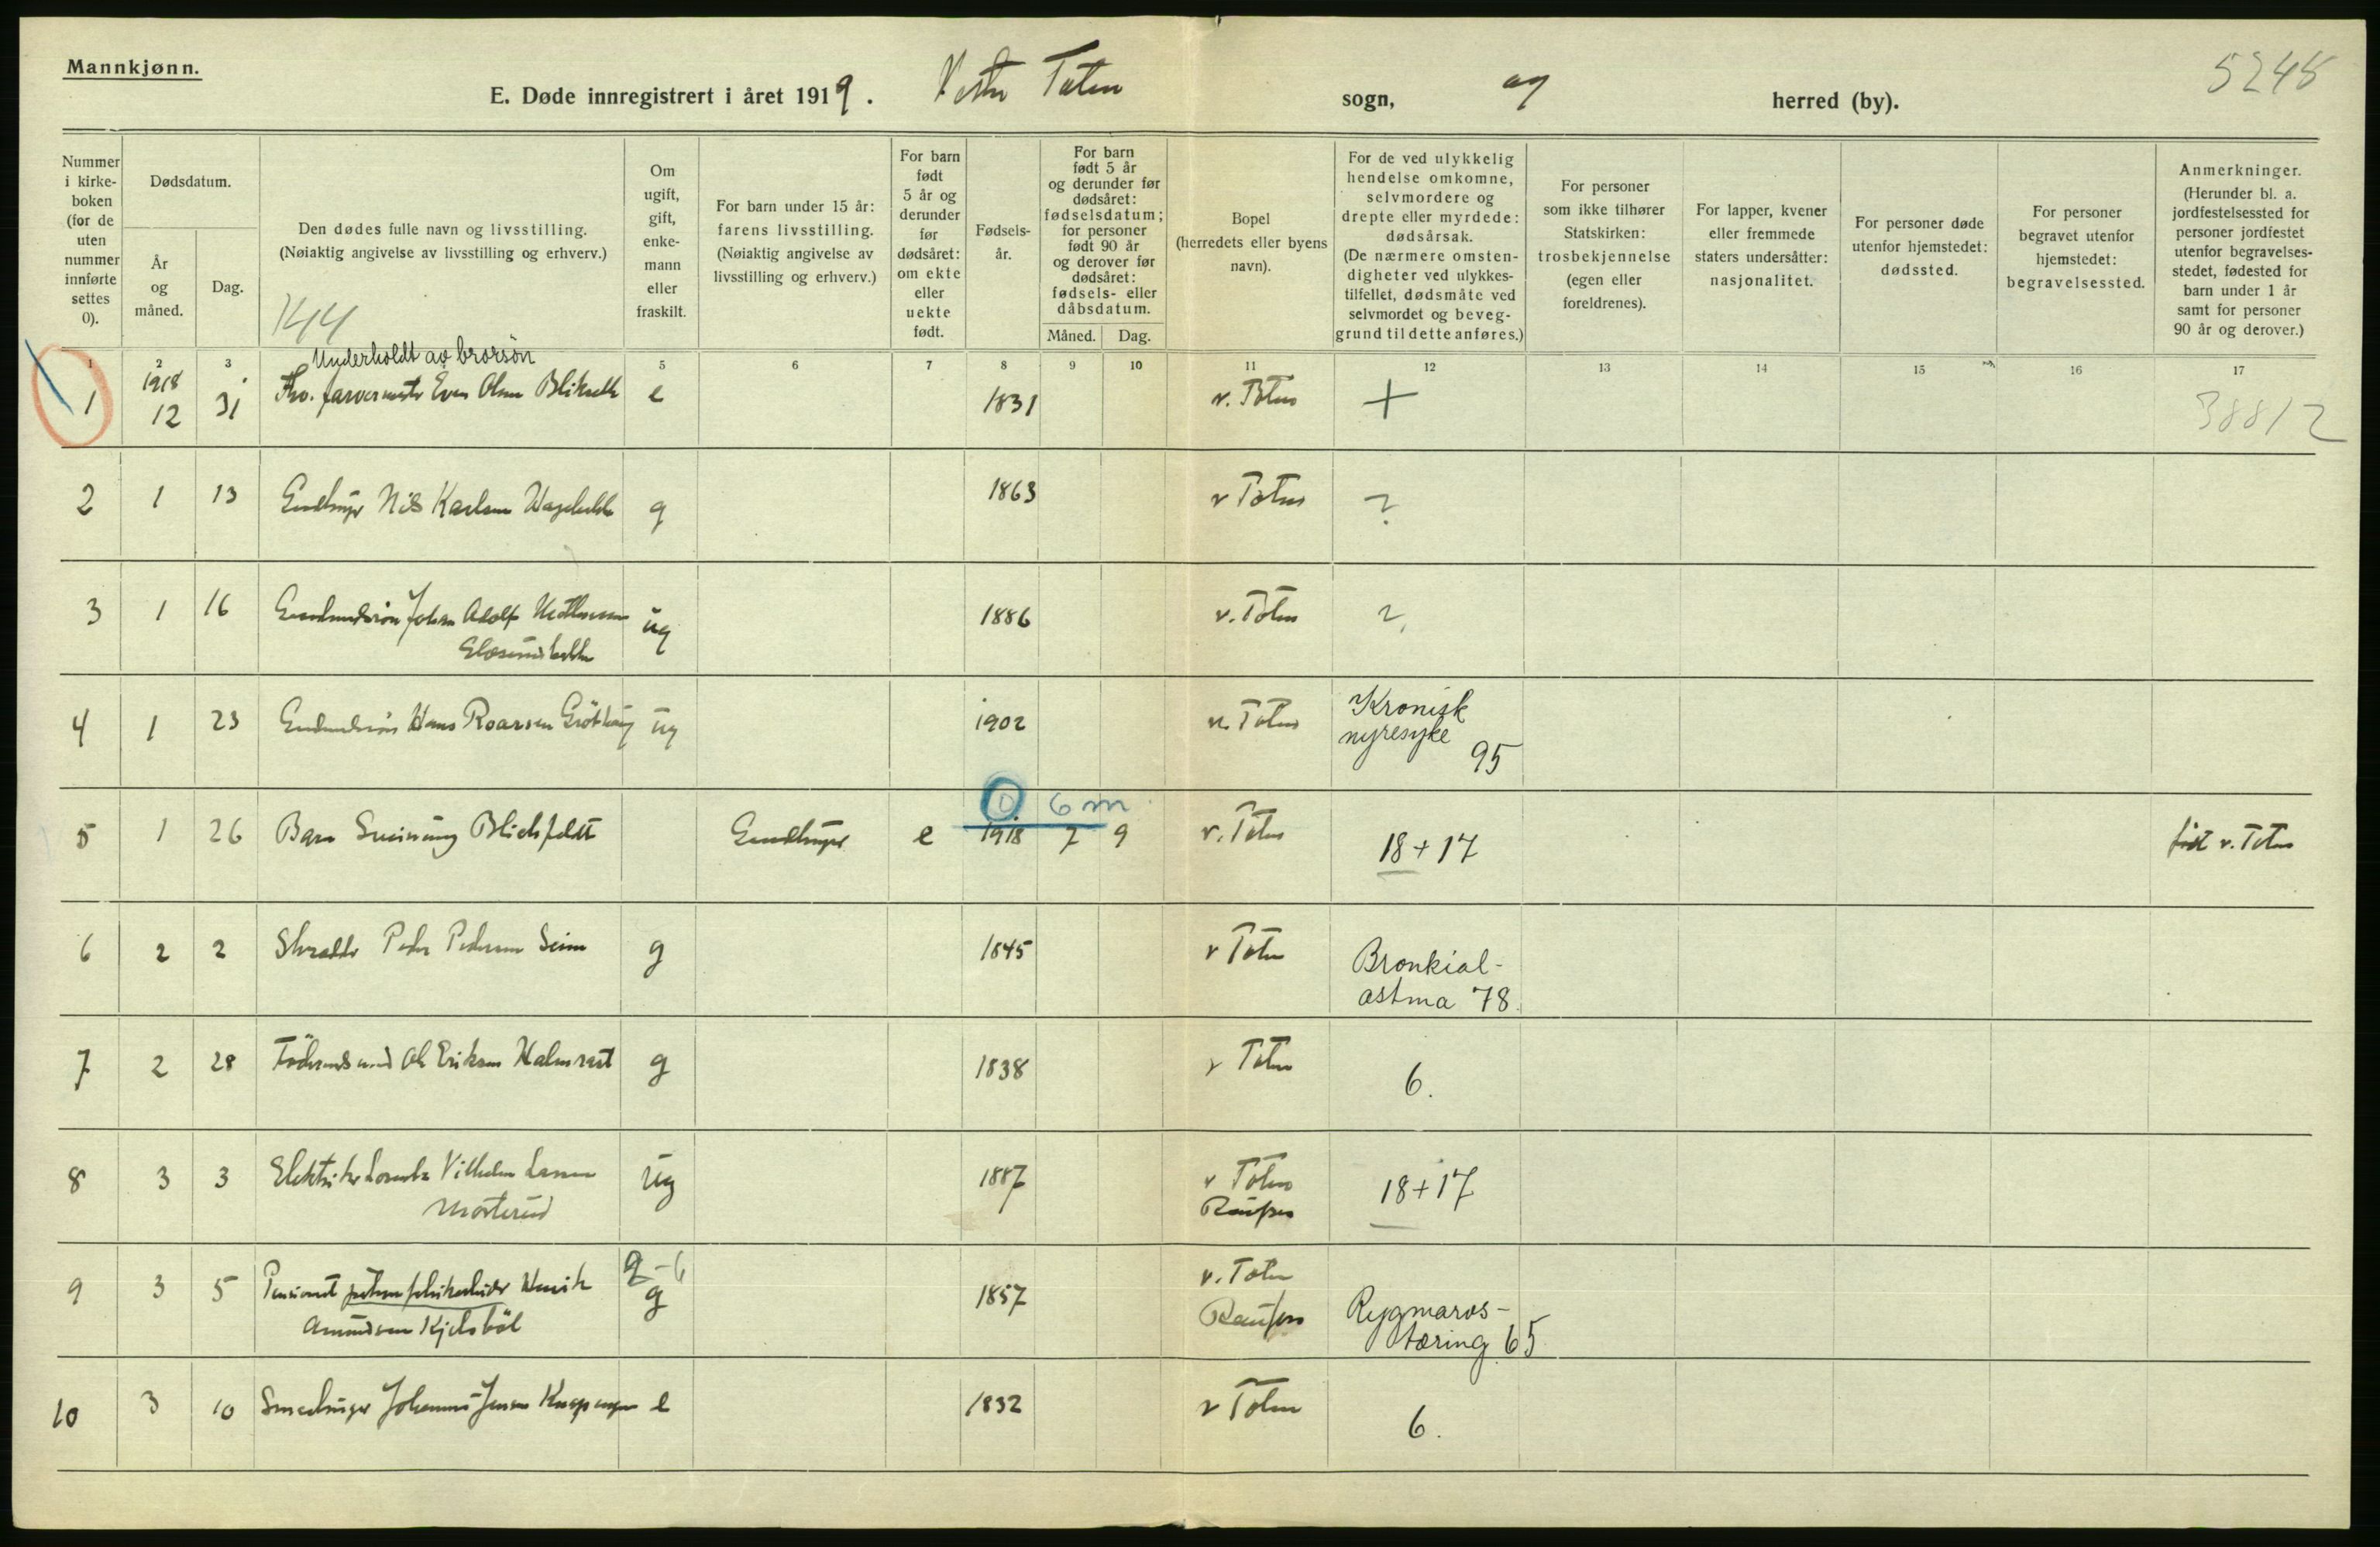 Mannkjønn.
5245
E. Døde innregistrert i året 1919. Vestre Toten sogn, og herred (by).
Nummer
i kirke-
boken
(for de
uten
nummer
innførte
settes
0).
Dødsdatum.
År
og
måned.
Dag.
Den dødes fulle navn og livsstilling.
(Nøiaktig angivelse av livsstilling og erhverv.)
144
Om
ugift,
gift,
enke-
mann
eller
fraskilt.
For barn under 15 år:
farens livsstilling.
(Nøiaktig angivelse av
livsstilling og erhverv.)
For barn
født
5 år og
derunder
før
dødsåret:
om ekte
eller
uekte
født.
Fødsels-
år.
For barn
født 5 år
og derunder før
dødsåret:
fødselsdatum;
for personer
født 90 år
og derover før
dødsåret:
fødsels- eller
dåbsdatum.
Måned. Dag.
Bopel
(herredets eller byens
navn).
For de ved ulykkelig
hendelse omkomne,
selvmordere og
drepte eller myrdede:
dødsårsak.
(De nærmere omsten-
digheter ved ulykkes-
tilfellet, dødsmåte ved
selvmordet og beveg-
grund til dette anføres.)
For personer
som ikke tilhører
Statskirken:
trosbekjennelse
(egen eller
foreldrenes).
For lapper, kvener
eller fremmede
staters undersåtter:
nasjonalitet.
For personer døde
utenfor hjemstedet:
dødssted.
For personer
begravet utenfor
hjemstedet:
begravelsessted.
Anmerkninger.
(Herunder bl. a.
jordfestelsessted for
personer jordfestet
utenfor begravelses-
stedet, fødested for
barn under 1 år
samt for personer
90 år og derover.)
1 2 3 5 6 7 8 9 10 11 12 13 14 15 16 17
Underholdt av brorsøn
1 1918 12 31 farvermester Even Olsen e 1831 v. Toten + 38812
2 1 13 Nils Karlsen g 1863 v Toten ?
3 1 16 Johan Adolf ug 1886 v. Toten ?
4 1 23 Hans Roarsen ug 1902 v. Toten Kronisk
nyresyke 95
0 6 m
5 1 26 Barn Blichfeldt e 1918 7 9 v. Toten 18+17 født v. Toten
6 2 2 Skrædder Peder Pedersen g 1845 v Toten Bronkial-
astma 78
7 2 28 Føderaadsmand Ole Eriksen Halmrast g 1838 v Toten 6.
8 3 3 Vilhelm Larsen ug 1887 v Toten 18+17
Raufoss
9 3 5 Pensionert g 1857 v. Toten Rygmarvs-
Amundsen Raufoss tæring 65
10 3 10 Johannes Jensen e 1832 v Toten 6.